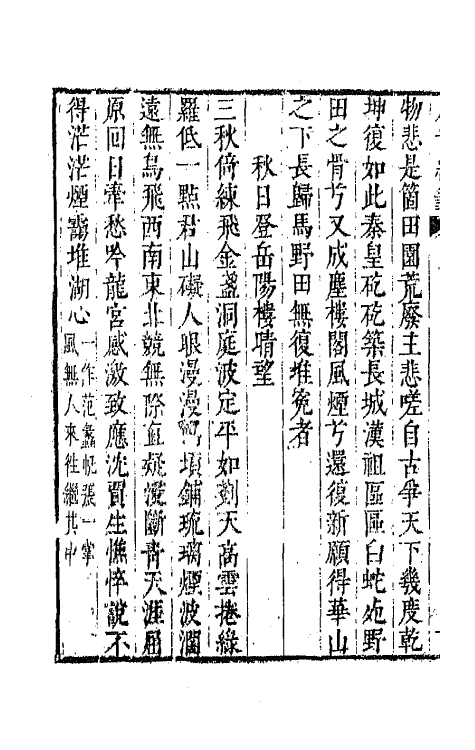 物悲是箇田園荒廢主悲嗟自古爭天下幾度乾
坤復如此秦皇矻矻築長城漢祖區區白蛇死野
田之骨兮又成塵樓閣風煙兮還復新願得華山
之下長歸馬野田無復堆寃者
秋日登岳陽樓晴望
三秋倚練飛金盞洞庭波定平如剗天高雲捲綠
羅低一點君山礙人眼漫漫萬頃鋪琉璃煙波濶
遠無鳥飛西南東北競無際直疑𠎝斷青天涯屈
原回日牽愁吟龍宮感激致應沈賈生憔悴說不
得茫茫煙靄堆湖心一作范蠡帆張一掌
風無人來往繼其中